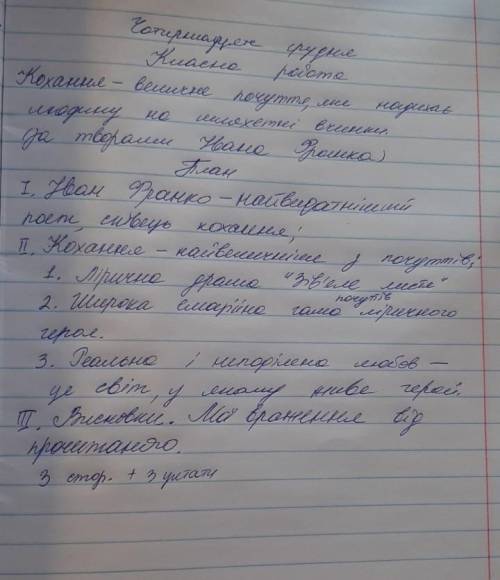 Чотирнадцяте грудня
Класна робота
Кохання – величне почуття, яке надихає
людину на шляхетні вчинки.
(за творами Івана Франка)
План
I. Іван Франко – найвидатніший
поет, співець кохання;
II. Кохання – найвеличніше з почуттів;
1. Лірична драма "Зів'яле листя"
2. Широка емоційна гама почуттів ліричного
героя.
3. Реальна і неподілена любов –
це світ, у якому живе герой.
III. Висновки. Мої враження від
прочитаного.
3 стор. + 3 цитати